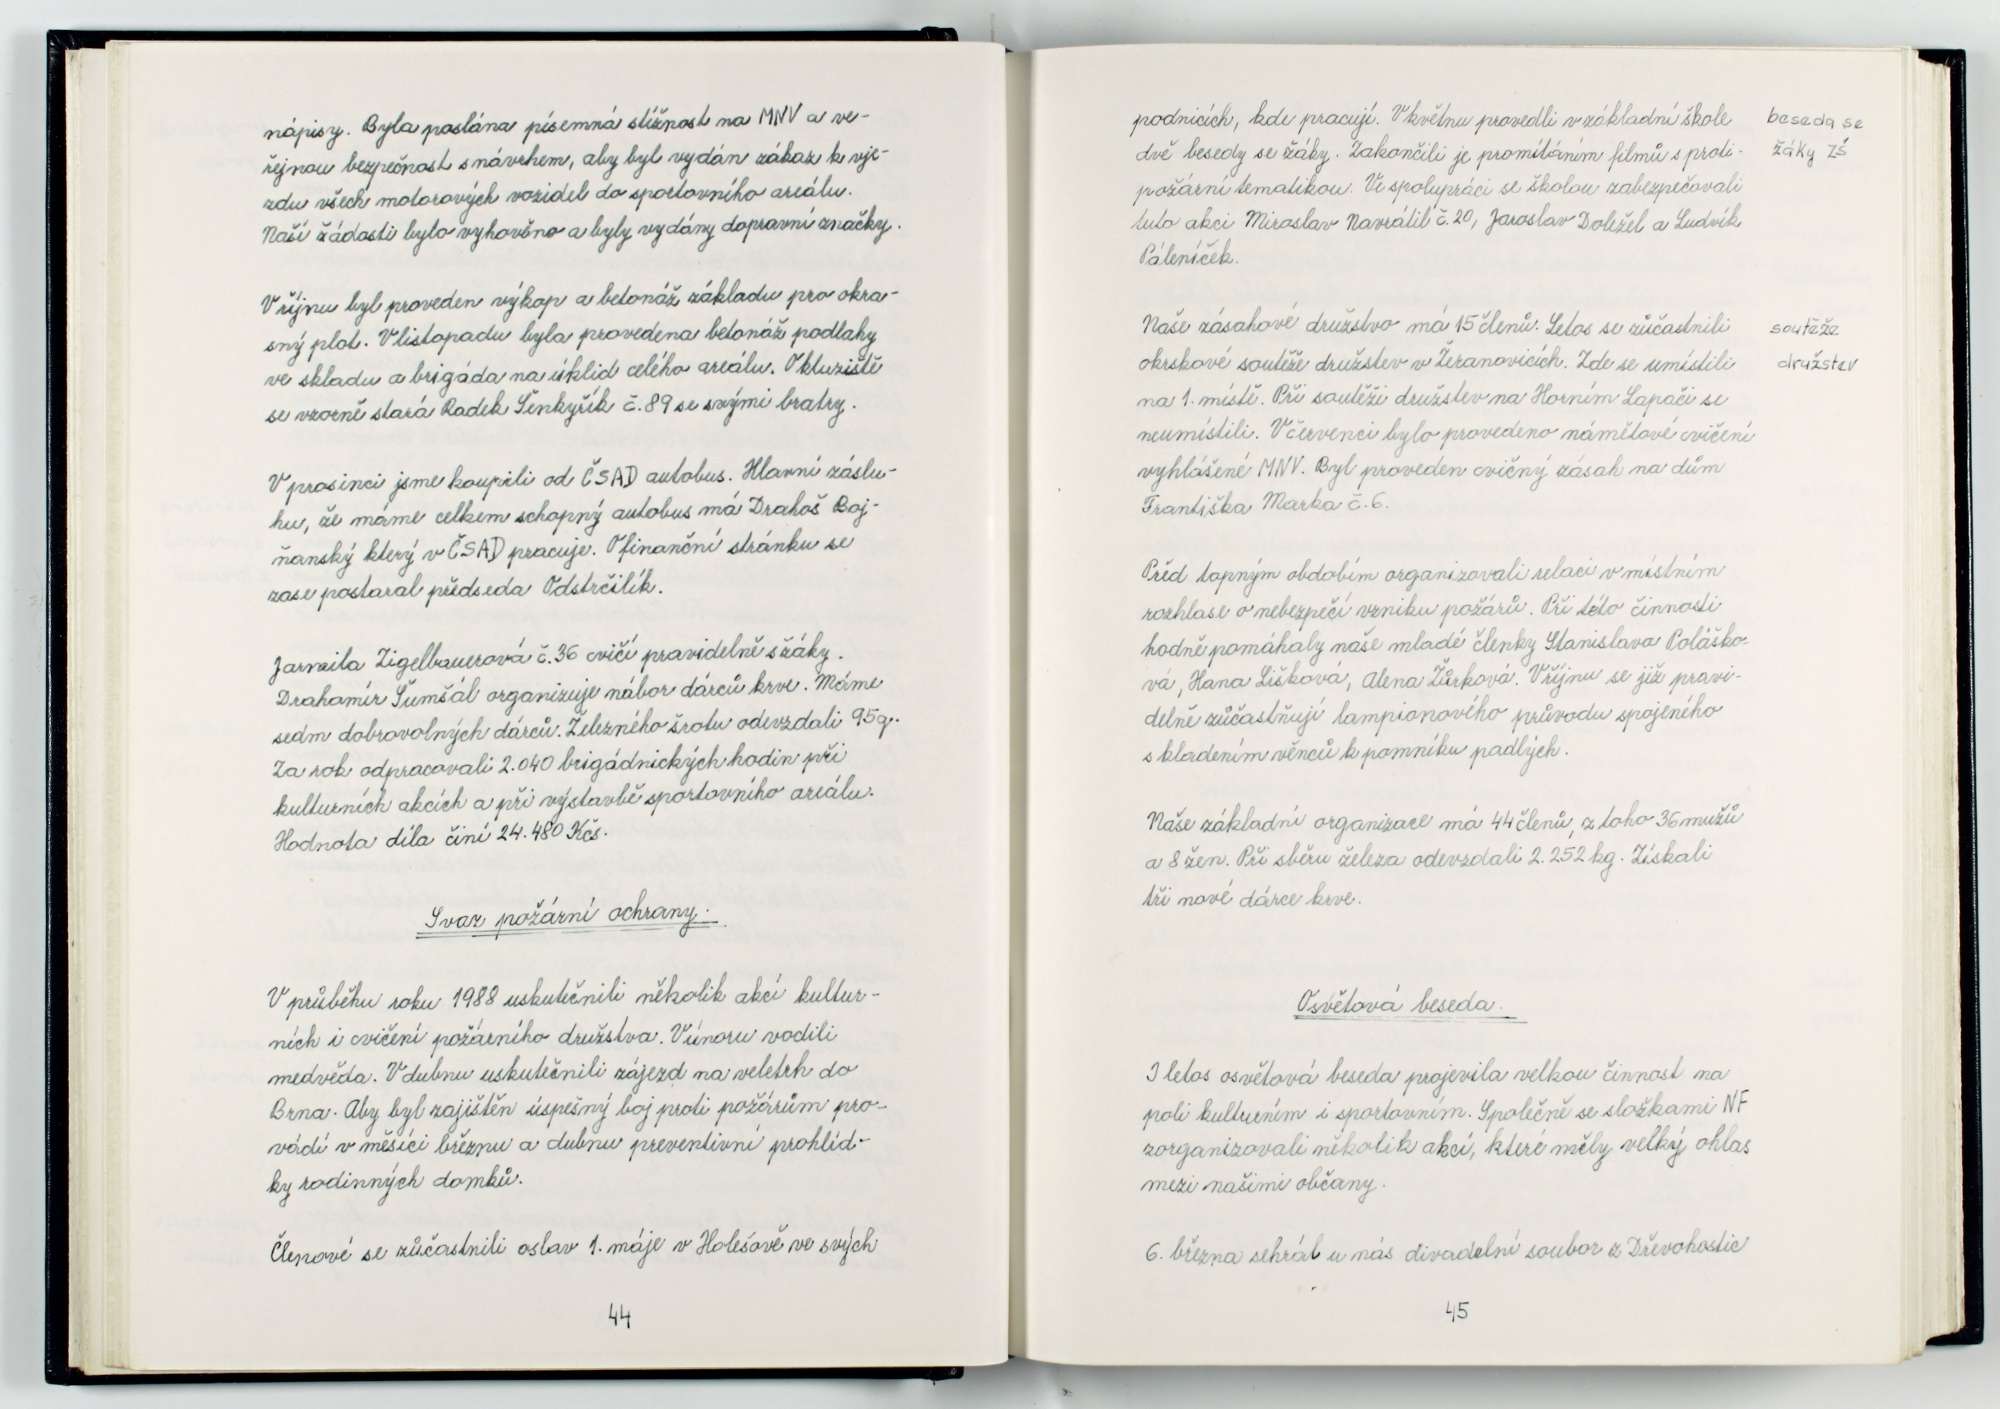 nápisy. Byla poslána písemná stížnost na MNV a ve-
řejnou bezpečnost s návrhem, aby byl vydán zákaz k vje-
zdu všech motorových vozidel do sportovního areálu.
Naší žádosti bylo vyhověno a byly vydány dopravní značky.
V říjnu byl proveden výkop a betonáž základu pro okra-
sný plot. V listopadu byla provedena betonáž podlahy
ve skladu a brigáda na úklid celého areálu. O kluziště
se vzorně stará Radek Šenkyřík č. 89 se svými bratry.
V prosinci jsme koupili od ČSAD autobus. Hlavní záslu-
hu, že máme celkem schopný autobus má Drahoš Boj-
ňanský který v ČSAD pracuje. O finanční stránku se
zase postaral předseda Odstrčilík.
Jarmila Zigelbauerová č. 36 cvičí pravidelně s žáky.
Drahamír Šumšál organizuje nábor dárců krve. Máme
sedm dobrovolných dárců. Železného šrotu odevzdali 95q.
Za rok odpracovali 2.040 brigádnických hodin při
kulturních akcích a při výstavbě sportovního areálu.
Hodnota díla činí 24.480 Kčs.
Svaz požární ochrany.
V průběhu roku 1988 uskutečnili několik akcí kultur-
ních i cvičení požárního družstva. V únoru vodili
medvěda. V dubnu uskutečnili zájezd na veletrh do
Brna. Aby byl zajištěn úspešný boj proti požárům pro-
vádí v měsíci březnu a dubnu preventivní prohlíd-
ky rodinných domků.
Členové se zůčastnili oslav 1. máje v Holešově ve svých
44
podnicích, kde pracují. V květnu provedli v základní škole
dvě besedy se žáky. Zakončili je promítáním filmů s proti-
požární tematikou. Ve spolupráci se školou zabezpečovali
tuto akci Miroslav Navrátil č. 20, Jaroslav Doležel a Ludvík
Páleníček.
beseda se
žáky ZŠ
Naše zásahové družstvo má 15 členů. Letos se zůčastnili
okrskové soutěže družstev v Žeranovicích. Zde se umístili
na 1. místě. Při soutěži družstev na Horním Lapači se
neumístili. V červenci bylo provedeno námětové cvičení
vyhlášené MNV. Byl proveden cvičný zásah na dům
Františka Marka č. 6.
soutěže
družstev
Před topným obdobím organizovali relaci v místním
rozhlase o nebezpečí vzniku požárů. Při této činnosti
hodně pomáhaly naše mladé členky Stanislava Poláško-
vá, Hana Lišková, Alena Žůrková. V říjnu se již pravi-
delně zůčastňují lampionového průvodu spojeného
s kladením věnců k pomníku padlých.
Naše základní organizace má 44 členů, z toho 36 mužů
a 8 žen. Při sběru železa odevzdali 2.252 kg. Získali
tři nové dárce krve.
Osvětová beseda.
I letos osvětová beseda projevila velkou činnost na
poli kulturním i sportovním. Společně se složkami NF
zorganizovali několik akcí, které měly velký ohlas
mezi našimi občany.
6. března sehrál u nás divadelní soubor z Dřevohostic
45